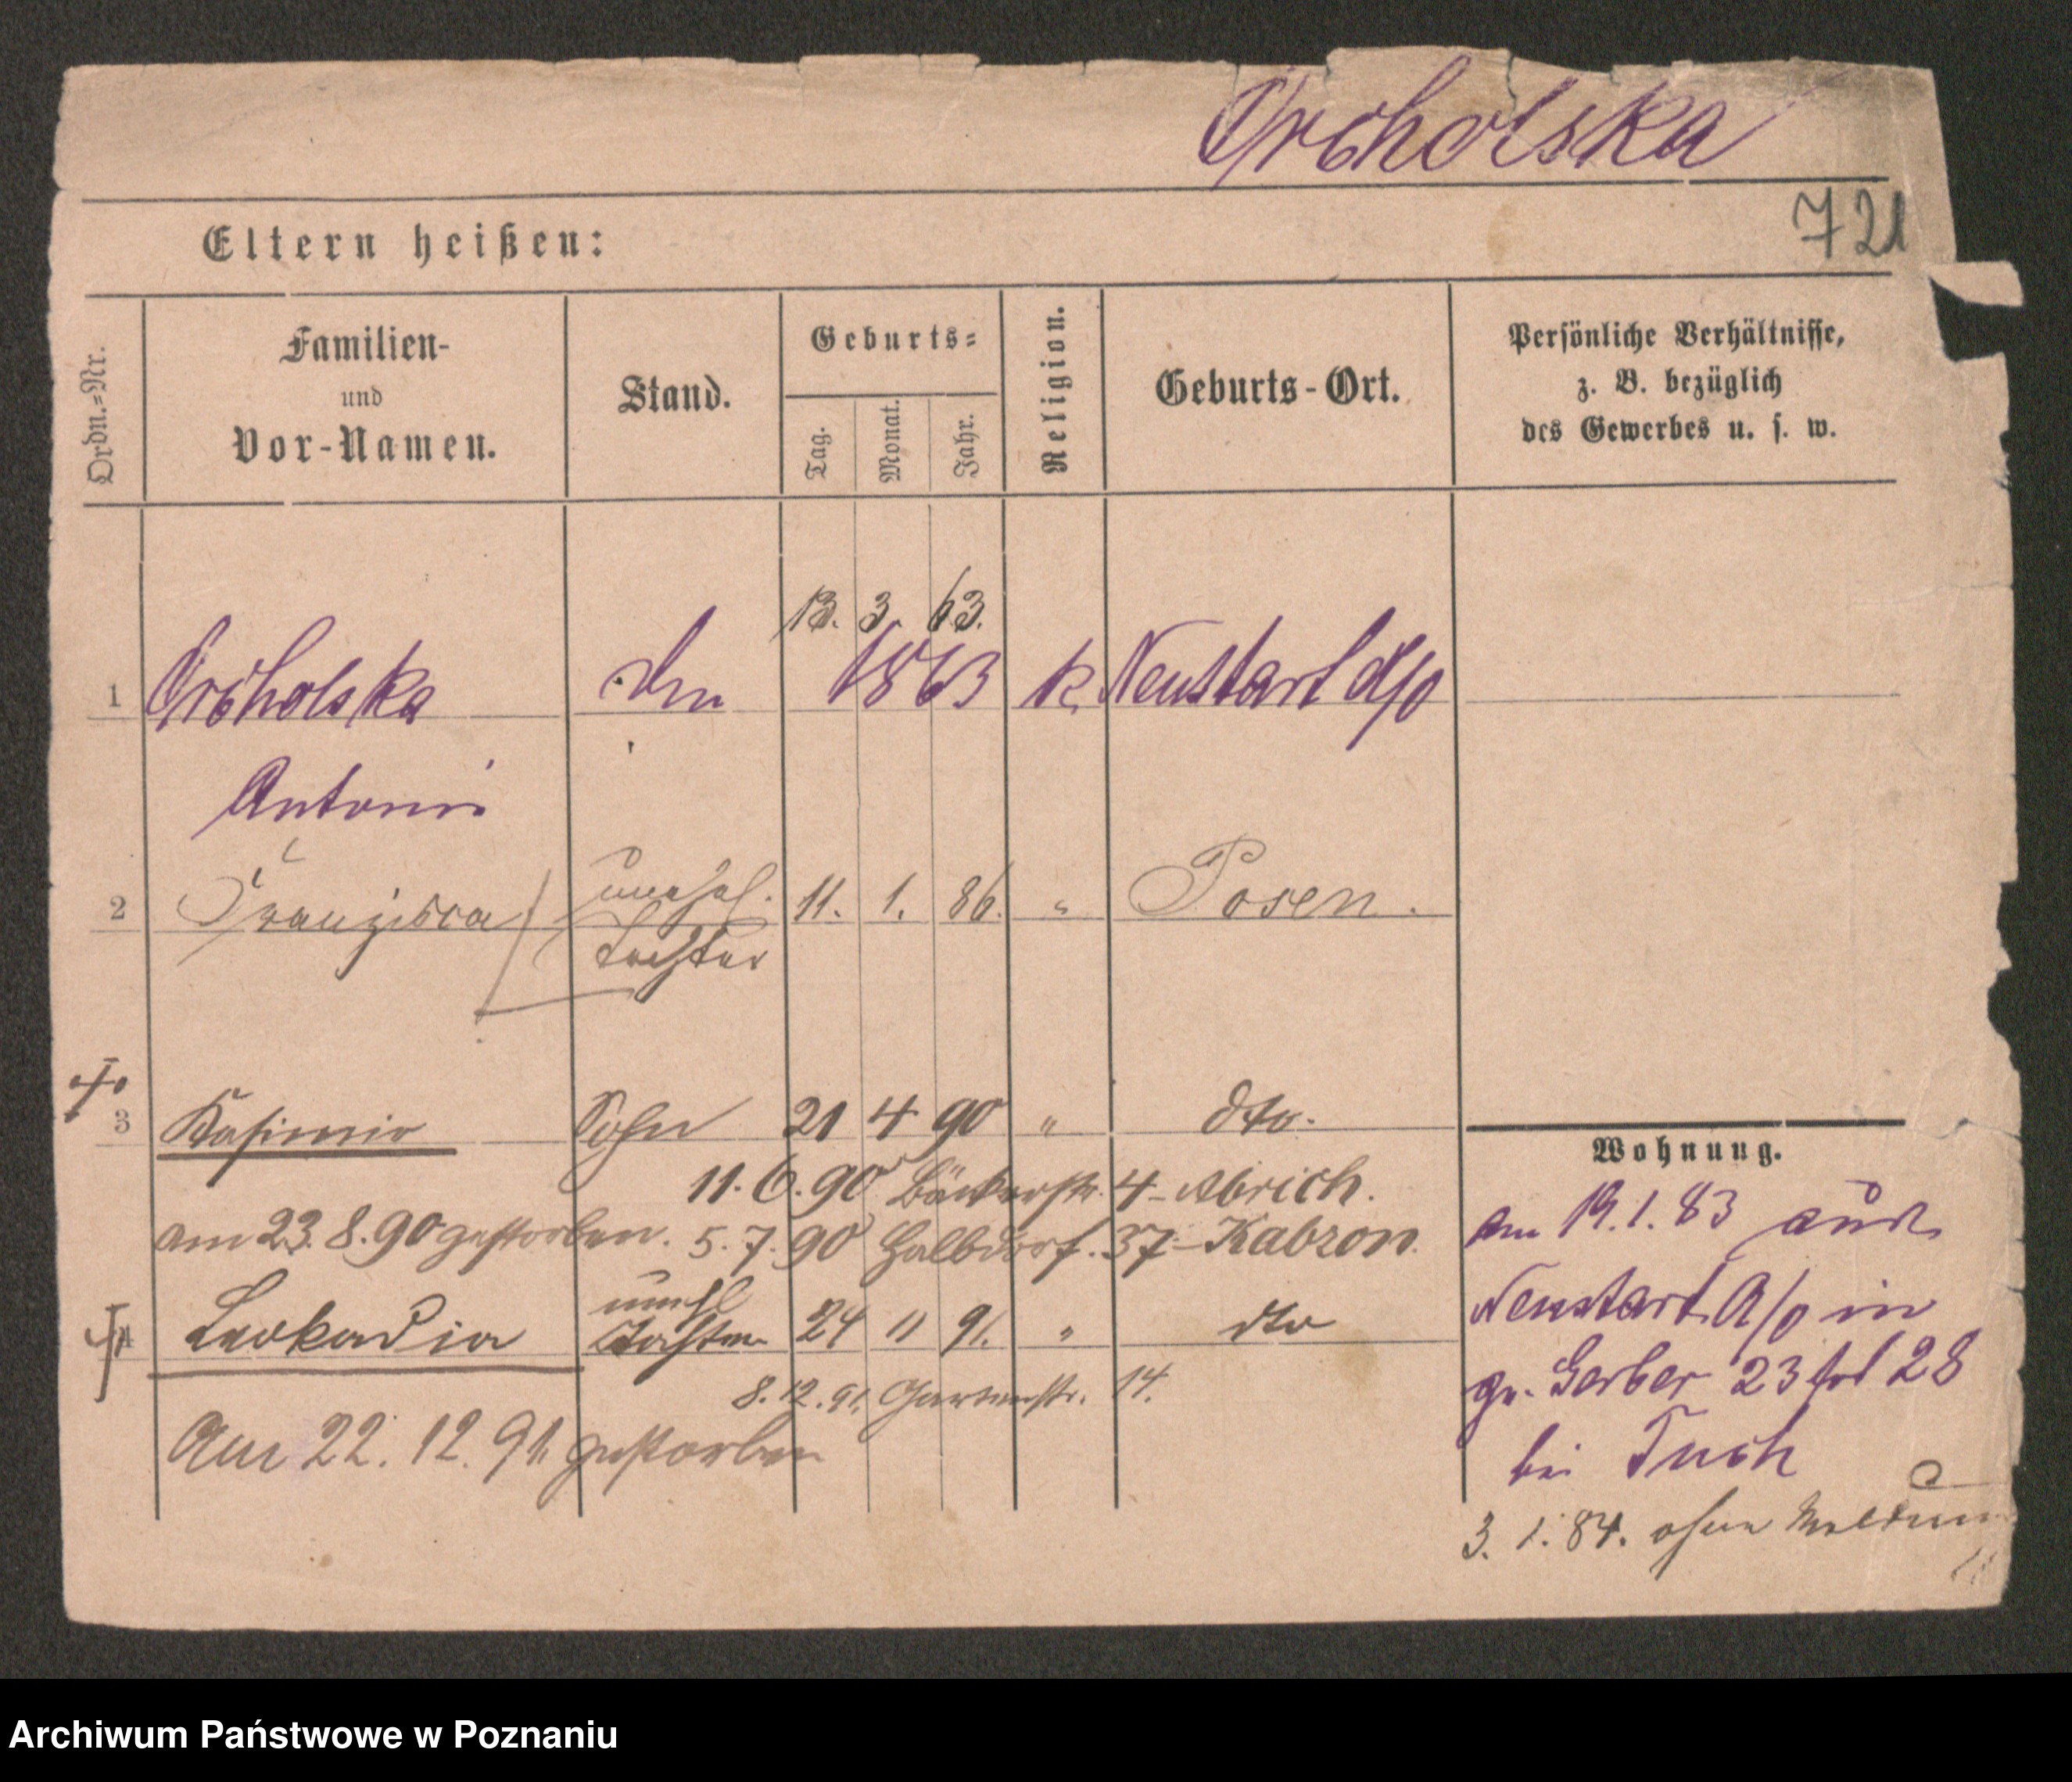 Orcholska
721
Eltern heißen:
Ordn.=Nr.
Familien-
und
Vor-Namen.
Stand.
Geburts=
Tag.
Monat.
Jahr.
Religion.
Geburts-Ort.
Persönliche Verhältnisse,
z. B. bezüglich
des Gewerbes u. s. w.
13. 3. 63.
1 Orcholska 1863 k. Neustart
Antonie
2 Franziska unehel. 11. 1. 86. " Posen.
Tochter
3 Kasimir Sohn 21 4 90 " dto.
11. 6. 90 Bäckerstr. 4 - Abrich.
am 23. 8. 90 gestorben. 5. 7. 90 Halbdorf. 37 - Kabzon.
unehl
4 Leokadia Tochter 24 11 91. " dto
8. 12. 91. Gartenstr. 14.
Am 22. 12. 91 gestorben
Wohnung.
am 19. 1. 83 aus
Neustart a/o in
gr. Gerber 23 28
bei Tuch
3. 1. 84. ohne Meldun
Archiwum Państwowe w Poznaniu